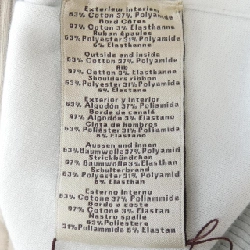 Exterieur Interieur
63% Coton 37% Polyamide
Bord Cotes
97% Coton 3% Elasthanne
Ruban épaules
63% Polyester 31% Polyamide
6% Elasthanne
Outside and inside
63% Cotton 37% Polyamide
Rib
97% Cotton 3% Elastane
Shoulders ribbon
63% Polyester 31% Polyamide
6% Elastane
Exterior y Interior
63% Algodon 37% Poliamida
Borde de canalé
97% Algodón 3% Elastano
Cinta de hombros
63% Poliéster 31% Poliamida
6% Elastano
Aussen und Innen
63% Baumwolle 37% Polyamid
Strickbündchen
97% Baumwolle 3% Elasthan
Schulterband
63% Polyester 31% Polyamid
6% Elasthan
Esterno Interno
63% Cotone 37% Poliammide
Bordo a coste
97% Cotone 3% Elastan
Nastro spalle
63% Poliester
31% Poliammide 6% Elastan